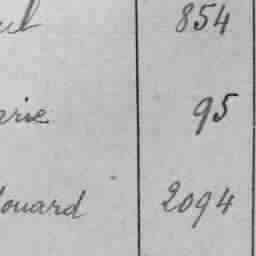 ul 854
arie 95
douard 2094